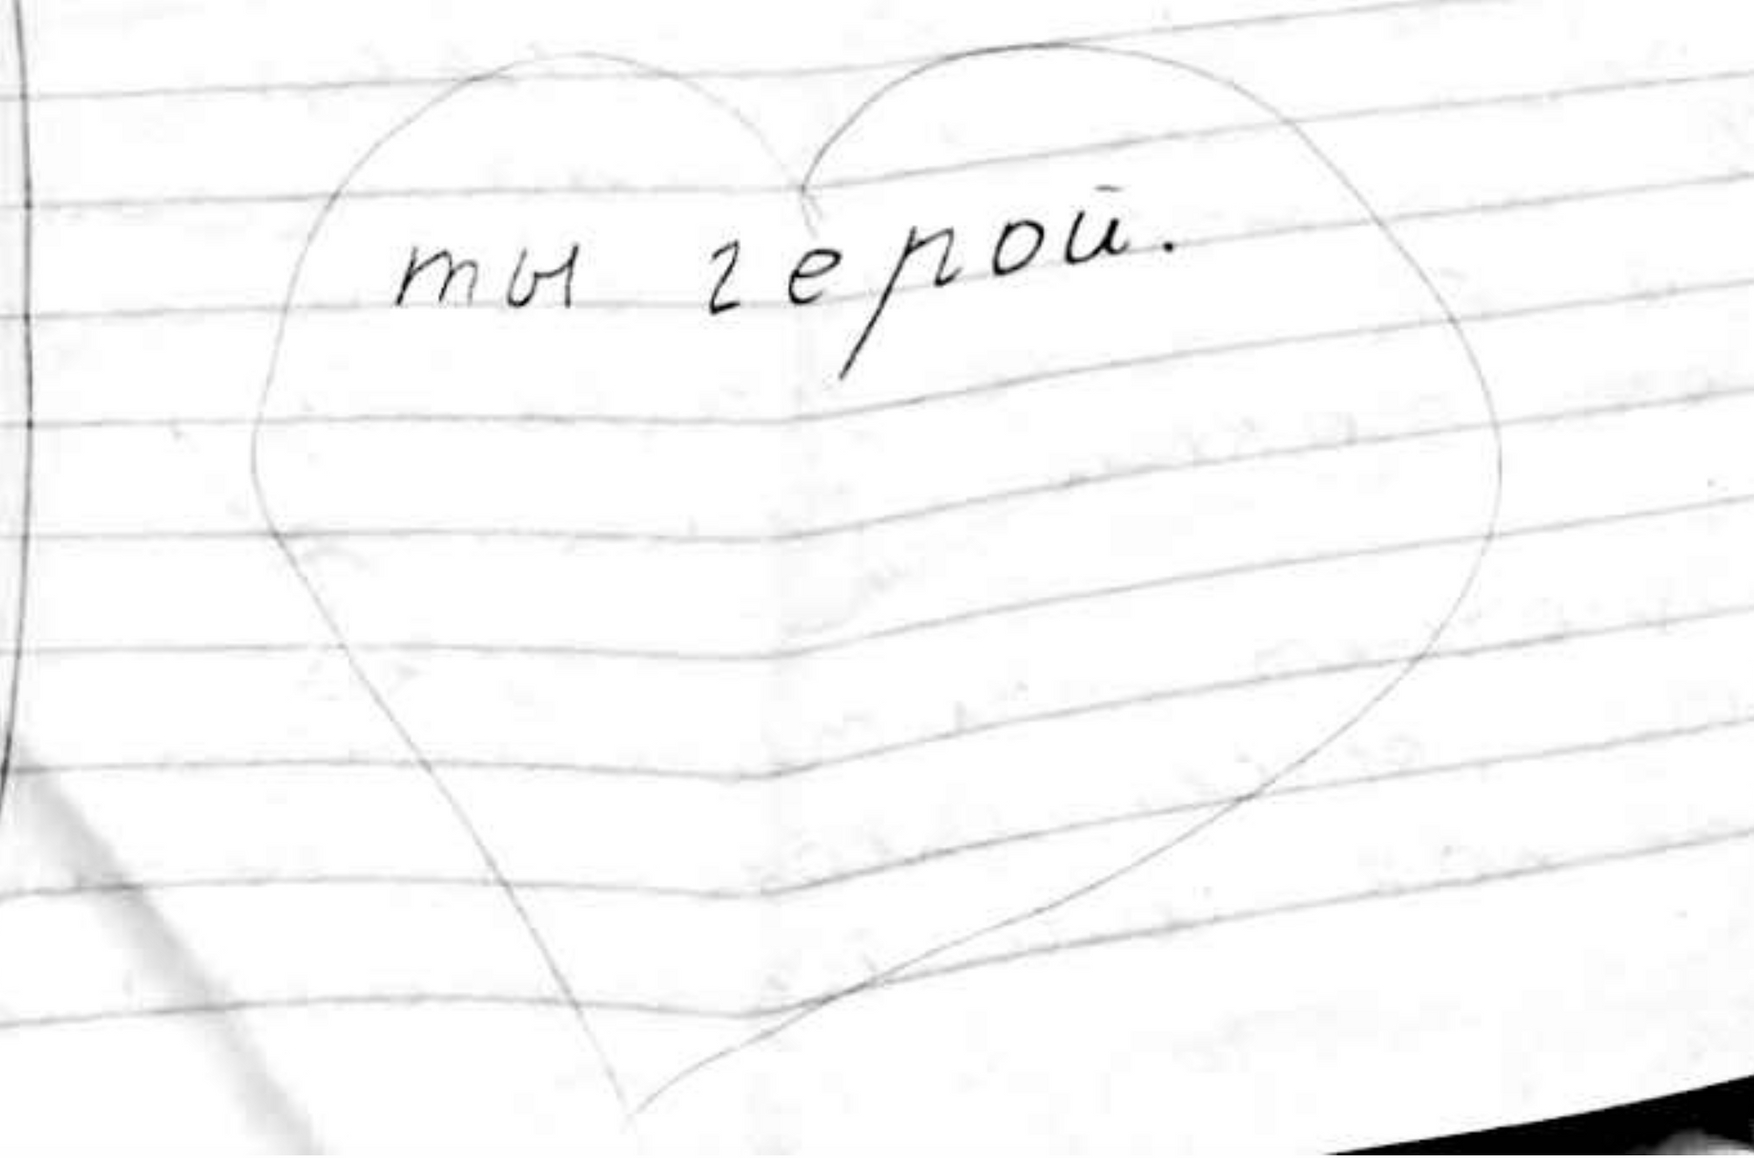 ты герой.